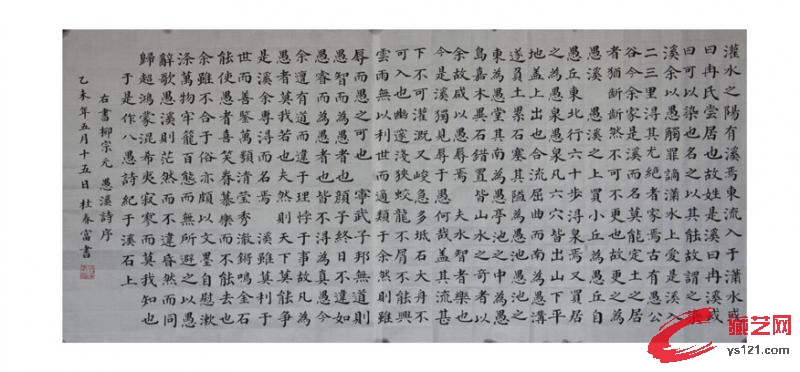 灌水之陽有溪焉東流入于瀟水或
曰冉氏雲居也故姓是溪曰冉溪或
曰可以染也名之以其能故謂之染
溪余以愚觸罪謫瀟水上愛是溪入
二三里淂其尤絕者家焉古有愚公
谷今余家是溪而名莫能定土之居
者猶齗齗然不可不更也故更之為
愚溪 愚溪之上買小丘為愚丘自
愚丘東北行六十步淂泉焉又買居
之為愚泉愚泉凡六穴皆出山下平
地盖上出也合流屈曲而南為愚溝
遂負土累石塞其隘為愚池愚池之
東為愚堂其南為愚亭池之中為愚
島嘉木異石錯置皆山水之奇者以
余故咸以愚辱焉 夫水智者樂也
今是溪獨見辱于愚何哉盖其流甚
下不可灌溉又峻急多坻石大舟不
可入也幽邃淺狹蛟龍不屑不能興
雲雨無以利世而適類于余然則雖
辱而愚之可也 寧武子邦無道如
愚智而為愚者也顏子終日不違如
愚睿而為愚者也皆不得為真愚今
余遭有道而違于理悖于事故凡為
愚者莫我若也夫然則天下莫能爭
是溪余專淂而名焉 溪雖莫利于
世而善鑒萬類清瑩秀澈鏘鳴金石
能使愚者喜笑眷慕樂而不能去也
余雖不合于俗亦頗以文墨自慰漱
滌萬物牢籠百態而無所避之以愚
辭歌愚溪則茫然而不違昏然而同
歸超鴻蒙混希夷寂寥而莫我知也
于是作八愚詩紀于溪石上
右書柳宗元 愚溪詩序
乙未年五月十五日杜春富書
藏艺网
ys121.com